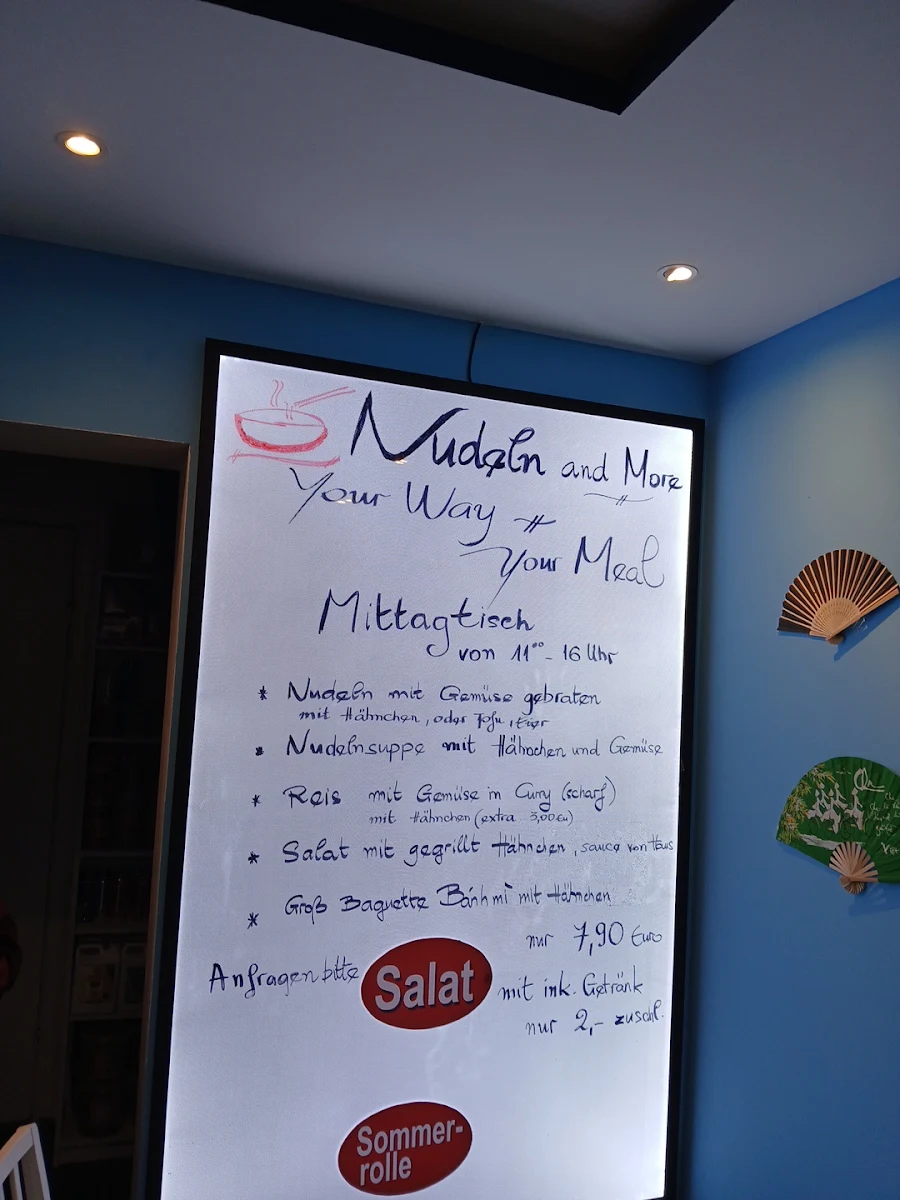 Nudeln and More
Your Way
Your Meal
Mittagtisch
von 11⁰⁰ - 16 Uhr
* Nudeln mit Gemüse gebraten
mit Hähnchen, oder Tofu, Eier
* Nudelnsuppe mit Hähnchen und Gemüse
* Reis mit Gemüse in Curry (scharf)
mit Hähnchen (extra 3,00 Eu)
* Salat mit gegrillt Hähnchen, sauce von Haus
* Groß Baguette Bánh mì mit Hähnchen
nur 7,90 Euro
Anfragen bitte Salat mit ink. Getränk
nur 2,- zuschl.
Sommer-
rolle